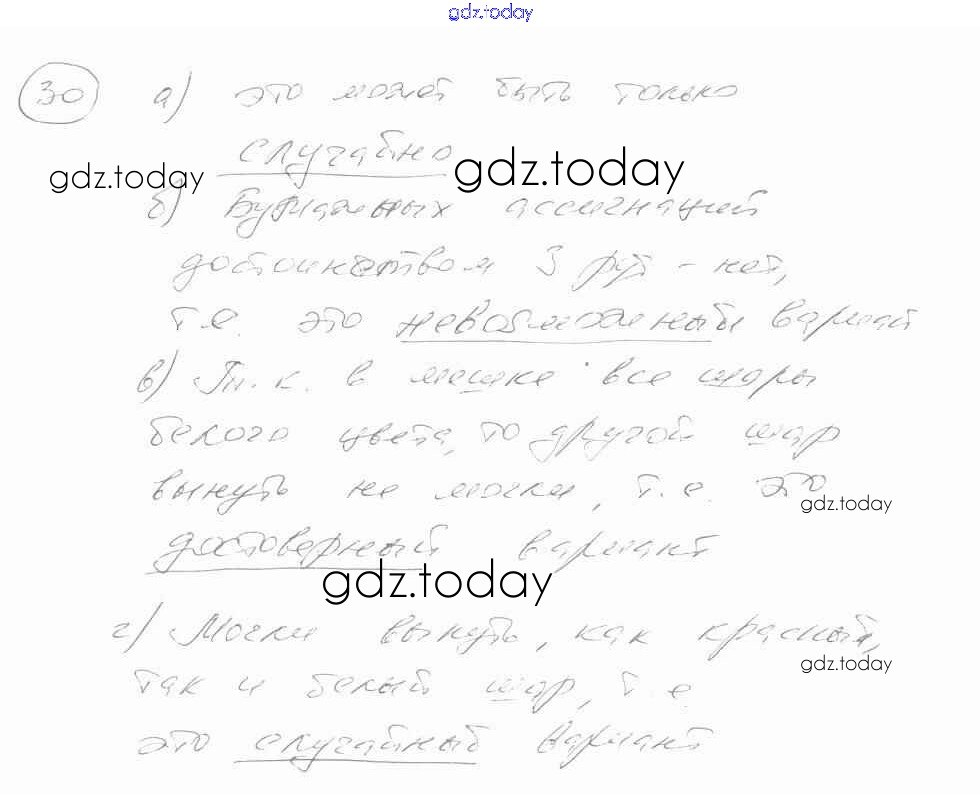 gdz.today
30 а) это может быть только
случайно
gdz.today gdz.today
б) Бумажных ассигнаций
достоинством 3 руб - нет,
т.е. это невозможный вариант
в) Т. к. в мешке все шары
белого цвета, то другой шар
вынуть не могли, т.е. это
gdz.today
достоверный вариант
gdz.today
г) Могли вынуть, как красный,
gdz.today
так и белый шар, т.е
это случайный вариант